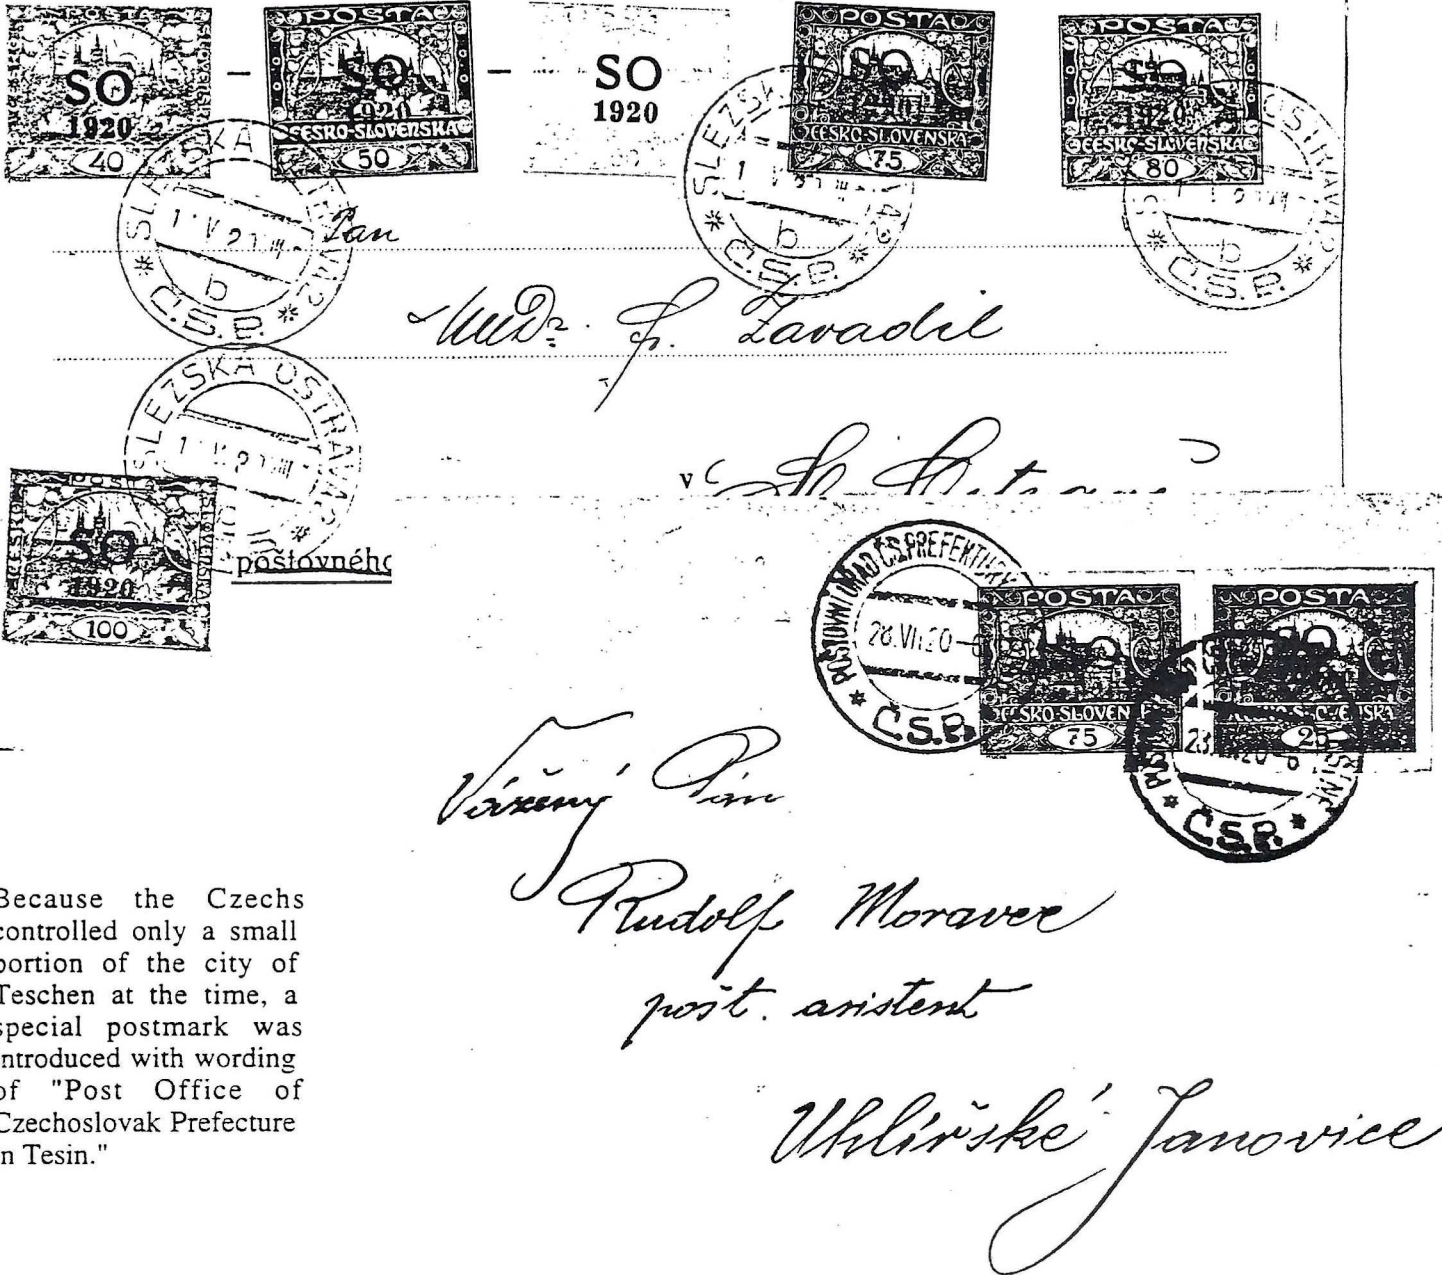 SO 1920 40
POSTA SO 1920 ČESKO-SLOVENSKA 50
SO 1920
POSTA SO ČESKO-SLOVENSKA 75
POSTA SO 1920 ČESKO-SLOVENSKA 80
SLEZSKÁ OSTRAVA 2 b Č.S.P.
SLEZSKÁ b Č.S.P.
OSTRAVA 2 b Č.S.P.
Pan
MUDr. F. Zavadil
v
SLEZSKÁ OSTRAVA 2
POSTA ČESKO SLOVENSKA SO 1920 100
poštovného
POŠTOVNÍ ÚŘAD Č.S. PREFEKTURY 28.VII.20 Č.S.P.
POSTA ČESKO-SLOVEN 75
POSTA SO 25
Č.S.P.
Vážený Pán
Rudolf Moravec
pošt. asistent
Uhlířské Janovice
Because the Czechs
controlled only a small
portion of the city of
Teschen at the time, a
special postmark was
introduced with wording
of "Post Office of
Czechoslovak Prefecture
in Tesin."